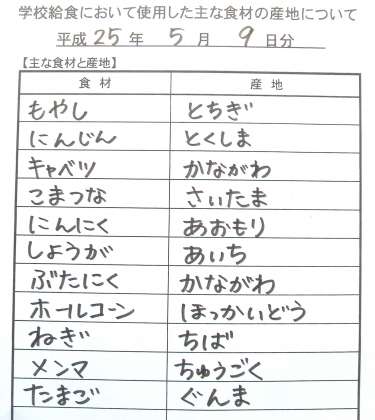 学校給食において使用した主な食材の産地について
平成 25 年 5 月 9 日分
【主な食材と産地】
食材 産地
もやし とちぎ
にんじん とくしま
キャベツ かながわ
こまつな さいたま
にんにく あおもり
しょうが あいち
ぶたにく かながわ
ホールコーン ほっかいどう
ねぎ ちば
メンマ ちゅうごく
たまご ぐんま